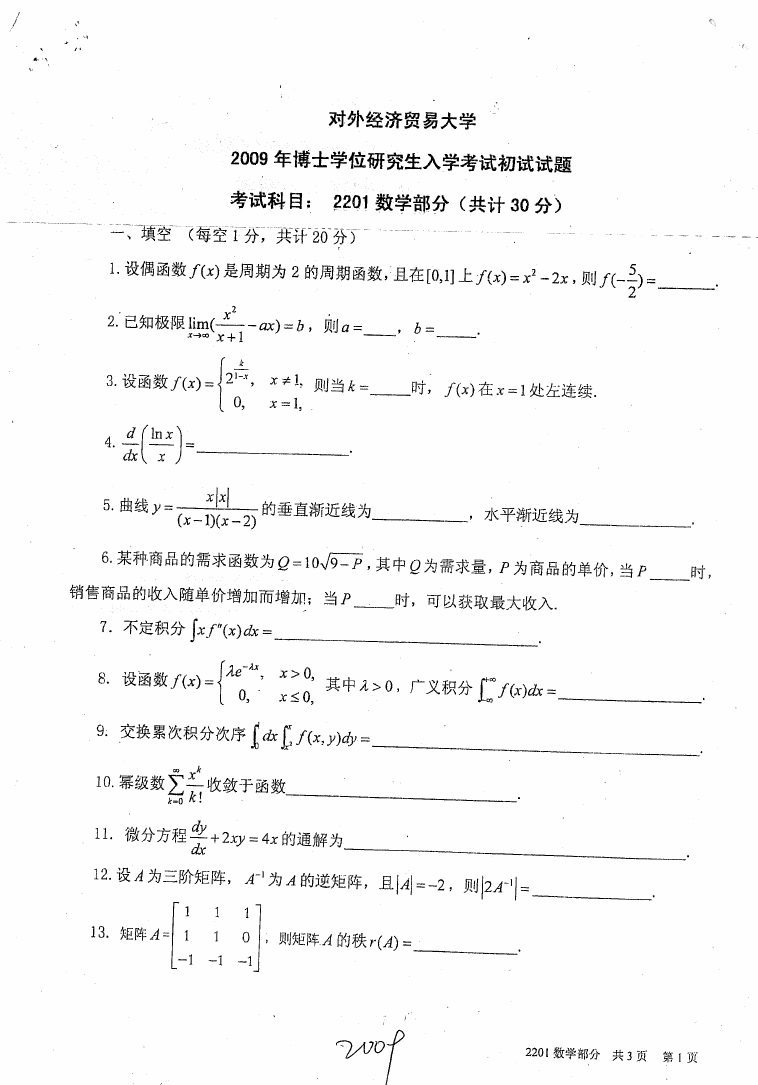 对外经济贸易大学
2009 年博士学位研究生入学考试初试试题
考试科目： 2201 数学部分（共计 30 分）
一、填空 （每空 1 分，共计 20 分）
1. 设偶函数 f(x) 是周期为 2 的周期函数，且在[0,1]上 f(x) = x² − 2x，则 f(−5/2) = ______.
2. 已知极限 lim_{x→∞}(x²/(x+1) − ax) = b，则 a = ____，b = ____.
3. 设函数 f(x) = { 2^{k/(1−x)}, x ≠ 1, 0, x = 1, 则当 k = ____时，f(x) 在 x = 1 处左连续.
4. d/dx (ln x / x) = ____________.
5. 曲线 y = x|x| / ((x−1)(x−2)) 的垂直渐近线为________，水平渐近线为________.
6. 某种商品的需求函数为 Q = 10√(9−P)，其中 Q 为需求量，P 为商品的单价，当 P ____时，
销售商品的收入随单价增加而增加；当 P ____时，可以获取最大收入.
7. 不定积分 ∫x f″(x)dx = ____________.
8. 设函数 f(x) = { λe^{−λx}, x > 0, 0, x ≤ 0, 其中 λ > 0，广义积分 ∫_{−∞}^{+∞} f(x)dx = ____________.
9. 交换累次积分次序 ∫_0^1 dx ∫_{x²}^{x} f(x,y)dy = ____________.
10. 幂级数 ∑_{k=0}^{∞} x^k/k! 收敛于函数____________.
11. 微分方程 dy/dx + 2xy = 4x 的通解为____________.
12. 设 A 为三阶矩阵，A⁻¹ 为 A 的逆矩阵，且|A| = −2，则|2A⁻¹| = ________.
13. 矩阵 A = [1 1 1; 1 1 0; −1 −1 −1]，则矩阵 A 的秩 r(A) = ________.
2009
2201 数学部分 共 3 页 第 1 页